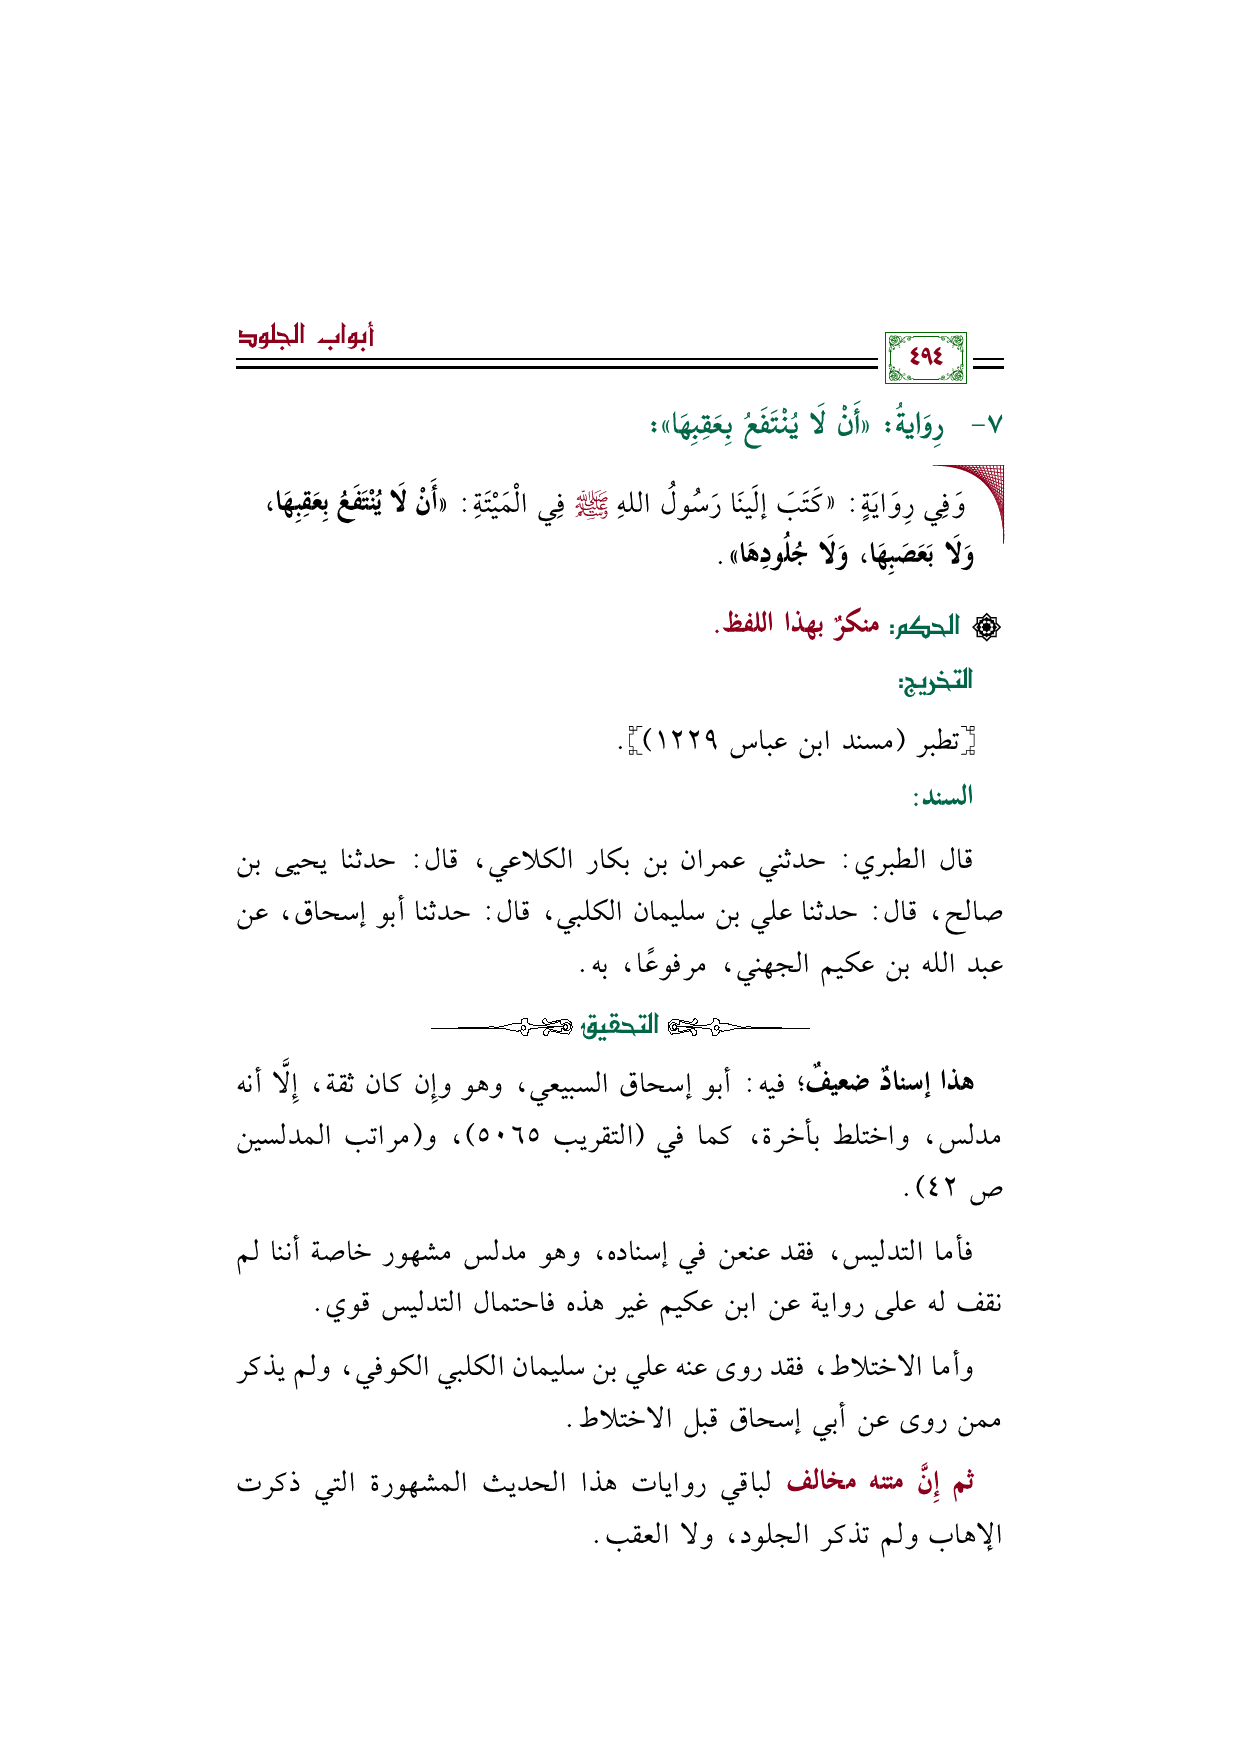 أبواب الجلود
٤٩٤
٧- رِوَايةُ: «أَنْ لَا يُنْتَفَعُ بِعَقِبِهَا»:
وَفِي رِوَايَةٍ: «كَتَبَ إلَينَا رَسُولُ اللهِ ﷺ فِي الْمَيْتَةِ: «أَنْ لَا يُنْتَفَعُ بِعَقِبِهَا،
وَلَا بَعَصَبِهَا، وَلَا جُلُودِهَا».
الحكم: منكرٌ بهذا اللفظ.
التخريج:
[تطبر (مسند ابن عباس ١٢٢٩)].
السند:
قال الطبري: حدثني عمران بن بكار الكلاعي، قال: حدثنا يحيى بن
صالح، قال: حدثنا علي بن سليمان الكلبي، قال: حدثنا أبو إسحاق، عن
عبد الله بن عكيم الجهني، مرفوعًا، به.
التحقيق
هذا إسنادٌ ضعيفٌ؛ فيه: أبو إسحاق السبيعي، وهو وإِن كان ثقة، إِلَّا أنه
مدلس، واختلط بأخرة، كما في (التقريب ٥٠٦٥)، و(مراتب المدلسين
ص ٤٢).
فأما التدليس، فقد عنعن في إسناده، وهو مدلس مشهور خاصة أننا لم
نقف له على رواية عن ابن عكيم غير هذه فاحتمال التدليس قوي.
وأما الاختلاط، فقد روى عنه علي بن سليمان الكلبي الكوفي، ولم يذكر
ممن روى عن أبي إسحاق قبل الاختلاط.
ثم إِنَّ متنه مخالف لباقي روايات هذا الحديث المشهورة التي ذكرت
الإهاب ولم تذكر الجلود، ولا العقب.